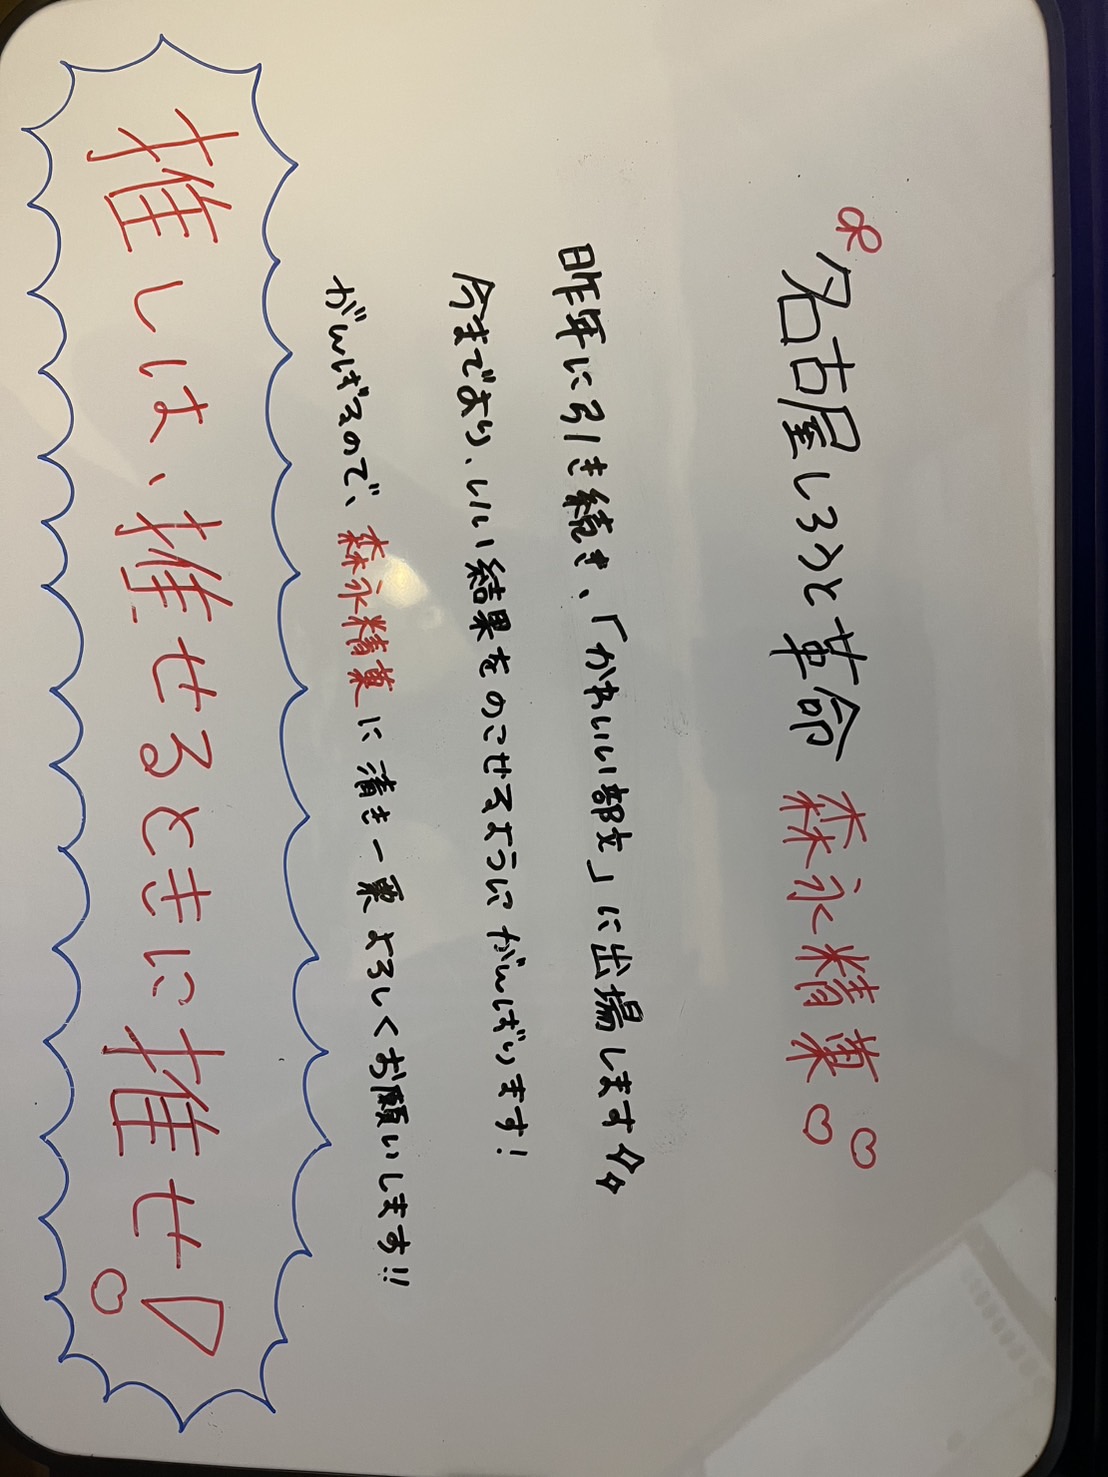 名古屋しろうと革命 森永精菓♡♡
昨年に引き続き、「かわいい部女」に出場します☆☆
今までより、いい結果をのこせるように がんばります!
がんばるので、森永精菓に清き一票よろしくお願いします!!
推しは、推せるときに推せ!♡